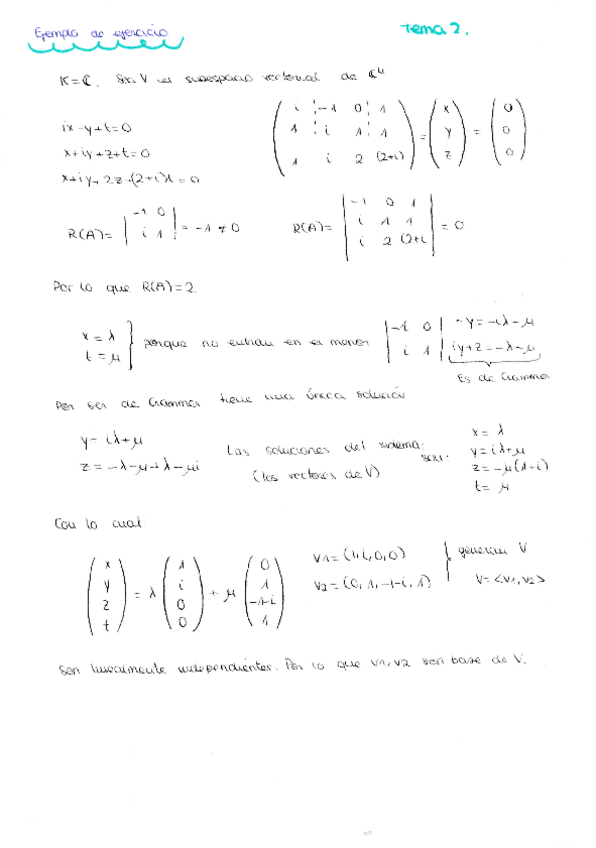 Ejemplo de ejercicio
Tema 2.
K=ℂ. Sea V un subespacio vectorial de ℂ⁴
ix-y+t=0
x+iy+z+t=0
x+iy+2z+(2+i)t=0
( i -1 0 1 ; 1 i 1 1 ; 1 i 2 (2+i) ) = ( x y z ) = ( 0 0 0 )
R(A)= | -1 0 ; i 1 | = -1 ≠ 0
R(A)= | -1 0 1 ; i 1 1 ; i 2 (2+i) | = 0
Por lo que R(A)=2.
x = λ
t = μ } porque no entran en el menor | -1 0 ; i 1 |
-y=-iλ-μ
iy+z=-λ-μ
Es de Crammer
Por ser de Crammer tiene una única solución
y= iλ+μ
z= -λ-μ+λ-μi
Las soluciones del sistema
(los vectores de V)
son:
x= λ
y= iλ+μ
z= -μ(1+i)
t= μ
Con lo cual
( x y z t ) = λ ( 1 i 0 0 ) + μ ( 0 1 -1-i 1 )
V1=(1,i,0,0)
V2=(0,1,-1-i,1)
generan V
V=<V1,V2>
Son linealmente independientes. Por lo que V1,V2 son base de V.